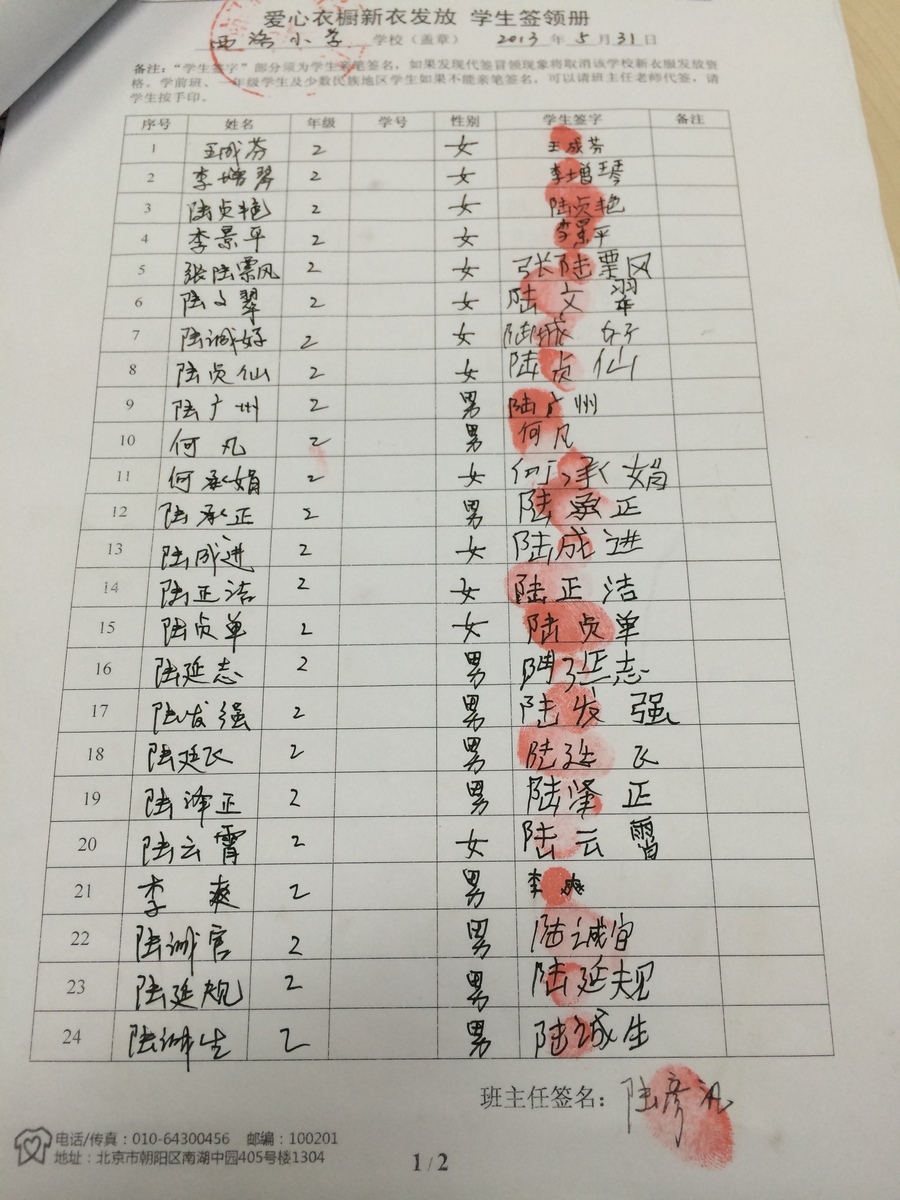 爱心衣橱新衣发放 学生签领册
西洛小学 学校（盖章） 2013 年 5 月 31 日
备注：“学生签字”部分须为学生亲笔签名，如果发现代签冒领现象将取消该学校新衣服发放资
格。学前班、一年级学生及少数民族地区学生如果不能亲笔签名，可以请班主任老师代签，请
学生按手印。
序号 姓名 年级 学号 性别 学生签字 备注
1 王成芬 2 女 王成芬
2 李增琴 2 女 李增琴
3 陆贞艳 2 女 陆贞艳
4 李景平 2 女 李景平
5 张陆票风 2 女 张陆票风
6 陆文翠 2 女 陆文翠
7 陆诚好 2 女 陆诚好
8 陆贞仙 2 女 陆贞仙
9 陆广州 2 男 陆广州
10 何凡 2 男 何凡
11 何承娟 2 女 何承娟
12 陆承正 2 男 陆承正
13 陆成进 2 女 陆成进
14 陆正洁 2 女 陆正洁
15 陆贞单 2 女 陆贞单
16 陆延志 2 男 陆延志
17 陆发强 2 男 陆发强
18 陆廷飞 2 男 陆廷飞
19 陆泽正 2 男 陆泽正
20 陆云霄 2 女 陆云霄
21 李爽 2 男 李爽
22 陆诚官 2 男 陆诚官
23 陆延规 2 男 陆延规
24 陆诚生 2 男 陆诚生
班主任签名：陆彦
电话/传真：010-64300456 邮编：100201
地址：北京市朝阳区南湖中园405号楼1304
1 / 2